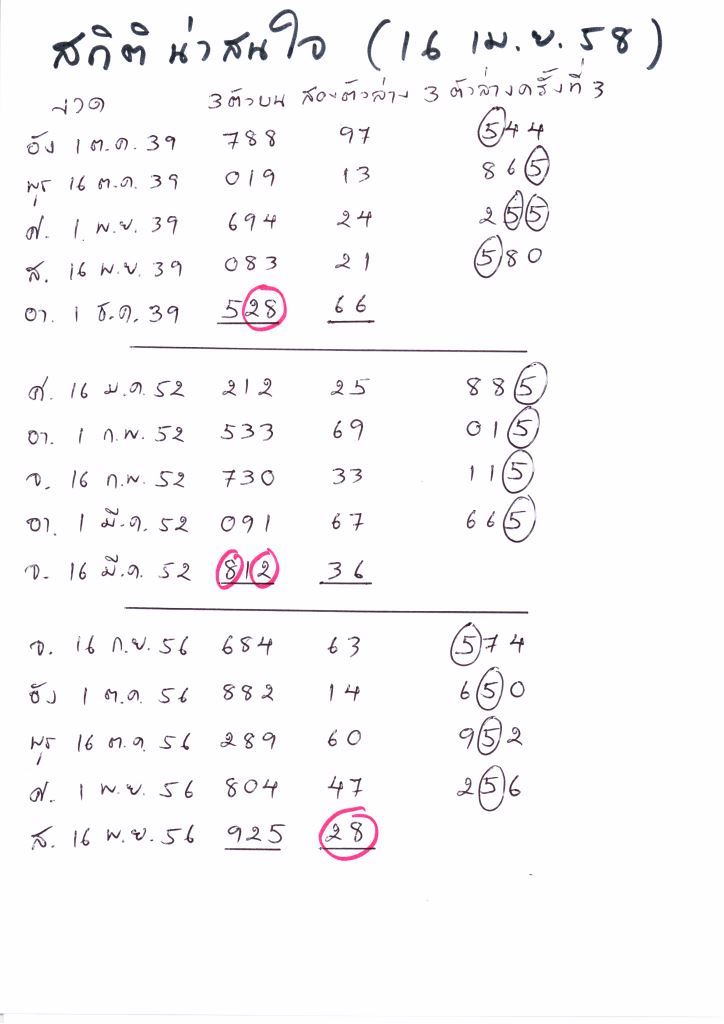 สถิติน่าสนใจ (16 เม.ย. 58)
งวด 3ตัวบน สองตัวล่าง 3 ตัวล่างครั้งที่ 3
อัง 1 ต.ค. 39 788 97 544
พุธ 16 ต.ค. 39 019 13 865
ศ. 1 พ.ย. 39 694 24 255
ส. 16 พ.ย. 39 083 21 580
อา. 1 ธ.ค. 39 528 66
ศ. 16 ม.ค. 52 212 25 885
อา. 1 ก.พ. 52 533 69 015
จ. 16 ก.พ. 52 730 33 115
อา. 1 มี.ค. 52 091 67 665
จ. 16 มี.ค. 52 812 36
จ. 16 ก.ย. 56 684 63 574
อัง 1 ต.ค. 56 882 14 650
พุธ 16 ต.ค. 56 289 60 952
ศ. 1 พ.ย. 56 804 47 256
ส. 16 พ.ย. 56 925 28